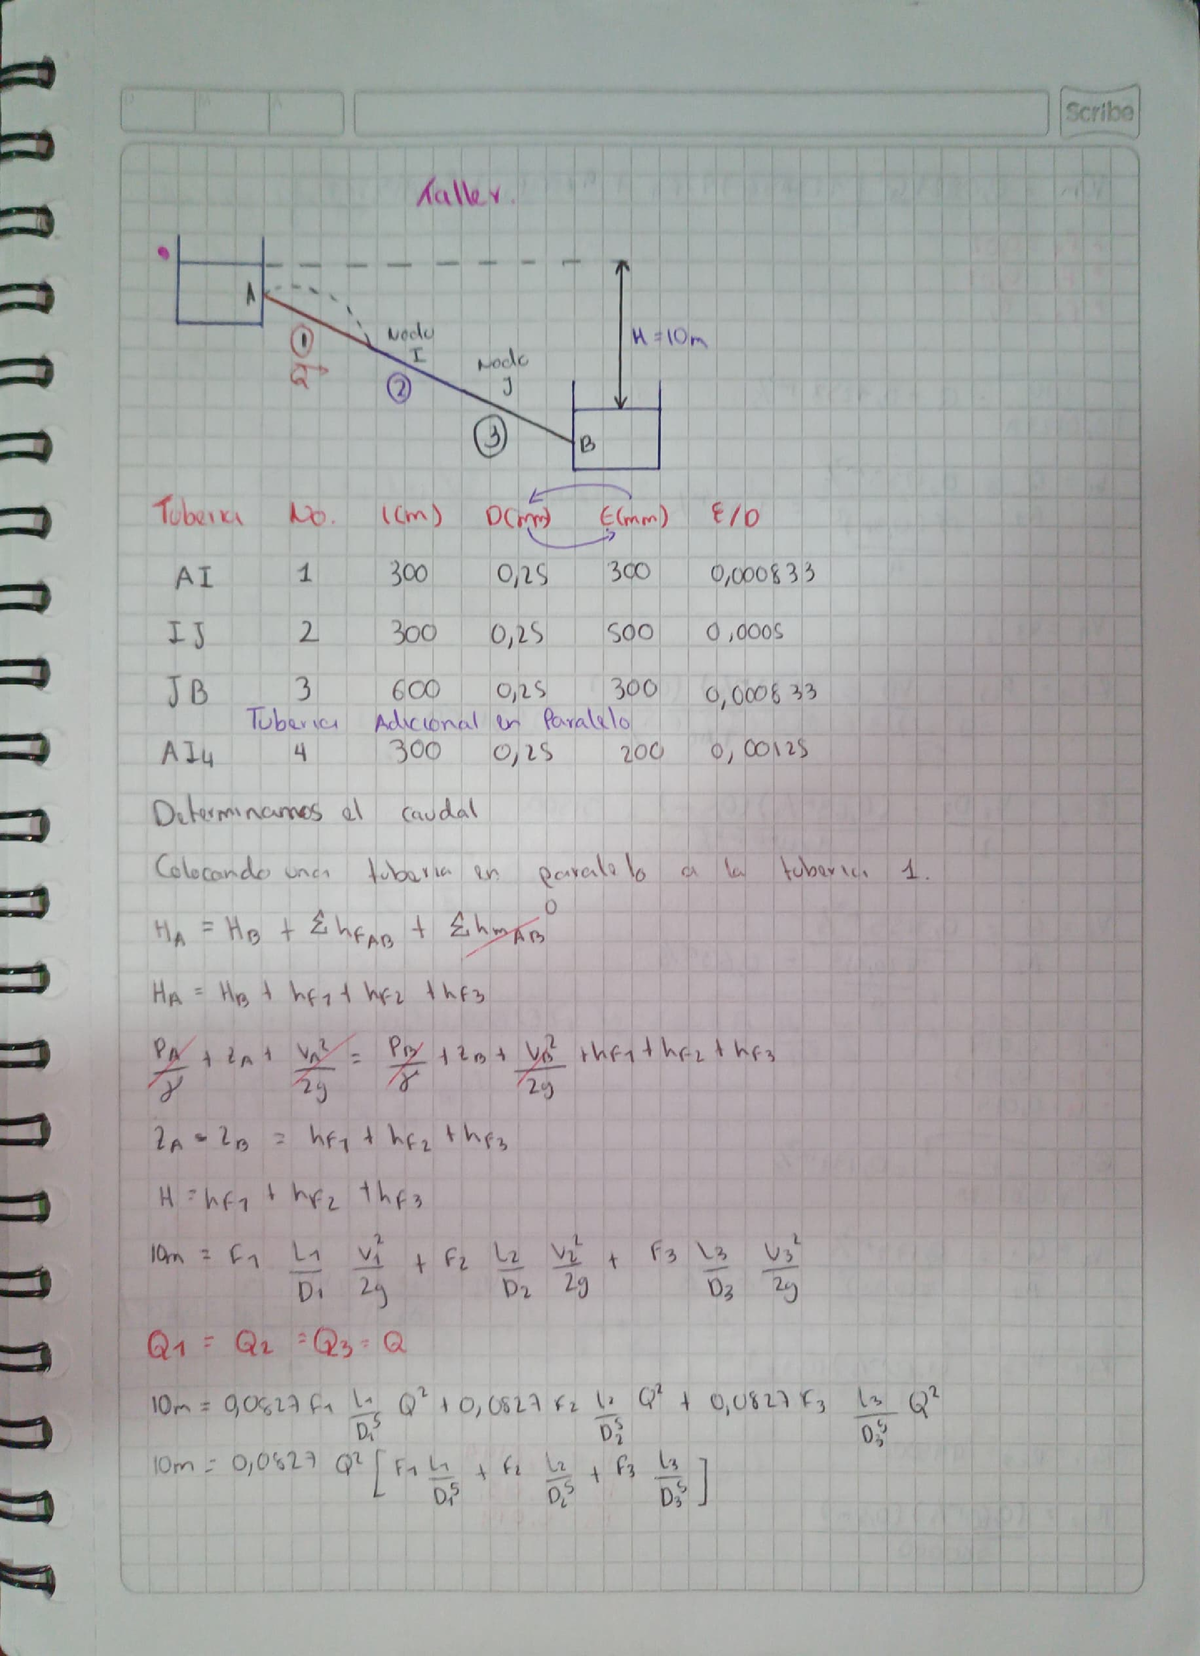 Scribe
Taller.
A
Nodo
I
Nodo
J
H = 10m
1
Q
2
3
B
Tuberia No. L(m) D(mm) E(mm) E/D
AI 1 300 0,25 300 0,000833
IJ 2 300 0,25 500 0,0005
JB 3 600 0,25 300 0,000833
Tuberia Adicional en Paralelo
AI4 4 300 0,25 200 0,00125
Determinamos el caudal
Colocando una tuberia en paralelo a la tuberia 1.
HA = HB + Σ hfAB + Σ hmAB 0
HA = HB + hf1 + hf2 + hf3
PA/γ + ZA + VA²/2g = PB/γ + ZB + VB²/2g + hf1 + hf2 + hf3
ZA - ZB = hf1 + hf2 + hf3
H = hf1 + hf2 + hf3
10m = F1 L1/D1 V1²/2g + F2 L2/D2 V2²/2g + F3 L3/D3 V3²/2g
Q1 = Q2 = Q3 = Q
10m = 0,0827 F1 L1/D1⁵ Q² + 0,0827 F2 L2/D2⁵ Q² + 0,0827 F3 L3/D3⁵ Q²
10m = 0,0827 Q² [F1 L1/D1⁵ + F2 L2/D2⁵ + F3 L3/D3⁵]